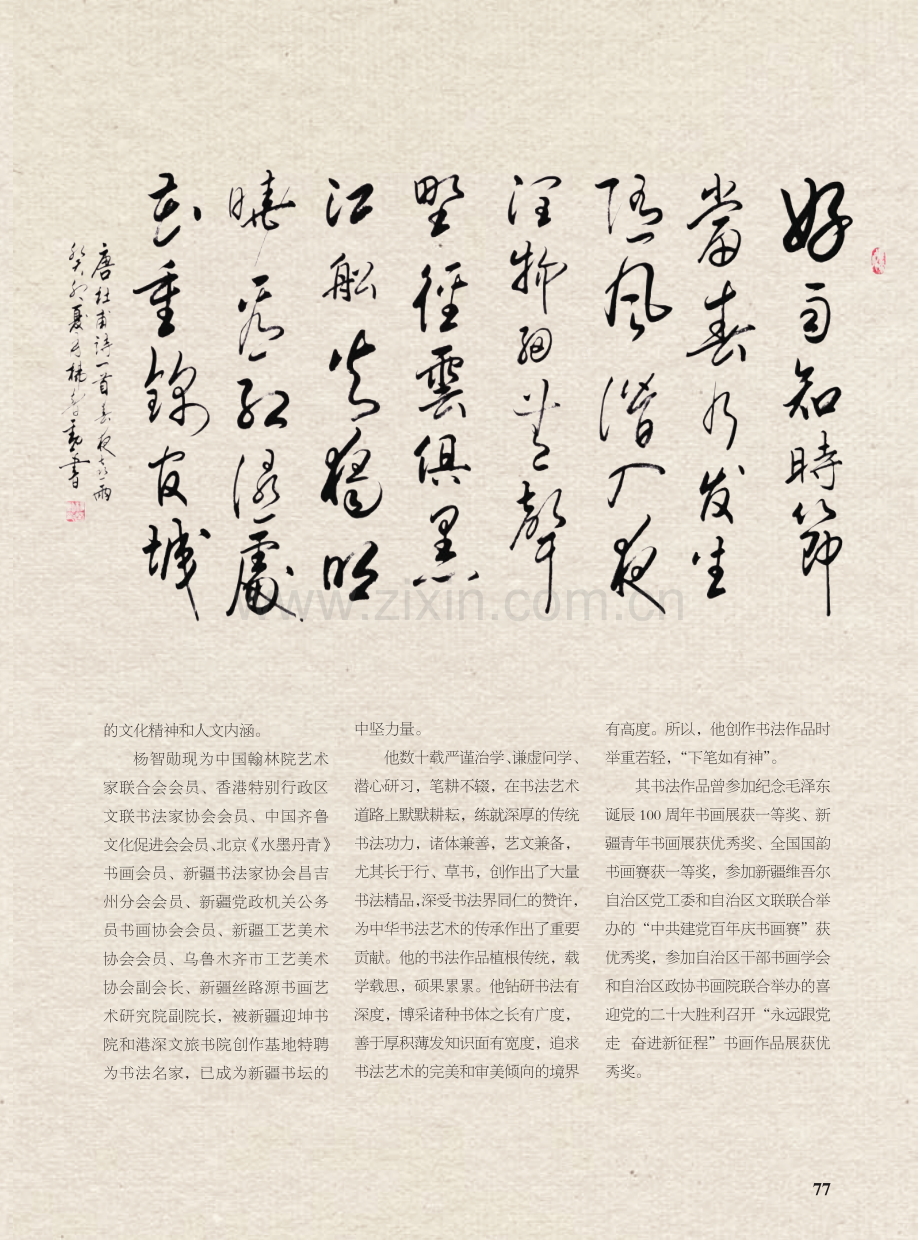 好雨知時節
當春乃发生
随風潛入夜
润物細無聲
野徑雲俱黑
江船火獨明
曉看红濕處
花重錦官城
唐杜甫詩一首春夜喜雨
癸卯夏月楊智勛書
www.zixin.com.cn
的文化精神和人文内涵。
杨智勋现为中国翰林院艺术
家联合会会员、香港特别行政区
文联书法家协会会员、中国齐鲁
文化促进会会员、北京《水墨丹青》
书画会员、新疆书法家协会昌吉
州分会会员、新疆党政机关公务
员书画协会会员、新疆工艺美术
协会会员、乌鲁木齐市工艺美术
协会副会长、新疆丝路源书画艺
术研究院副院长，被新疆迎坤书
院和港深文旅书院创作基地特聘
为书法名家，已成为新疆书坛的
中坚力量。
他数十载严谨治学、谦虚问学、
潜心研习，笔耕不辍，在书法艺术
道路上默默耕耘，练就深厚的传统
书法功力，诸体兼善，艺文兼备，
尤其长于行、草书，创作出了大量
书法精品，深受书法界同仁的赞许，
为中华书法艺术的传承作出了重要
贡献。他的书法作品植根传统，载
学载思，硕果累累。他钻研书法有
深度，博采诸种书体之长有广度，
善于厚积薄发知识面有宽度，追求
书法艺术的完美和审美倾向的境界
有高度。所以，他创作书法作品时
举重若轻，“下笔如有神”。
其书法作品曾参加纪念毛泽东
诞辰 100 周年书画展获一等奖、新
疆青年书画展获优秀奖、全国国韵
书画赛获一等奖，参加新疆维吾尔
自治区党工委和自治区文联联合举
办的“中共建党百年庆书画赛”获
优秀奖，参加自治区干部书画学会
和自治区政协书画院联合举办的喜
迎党的二十大胜利召开“永远跟党
走 奋进新征程”书画作品展获优
秀奖。
77